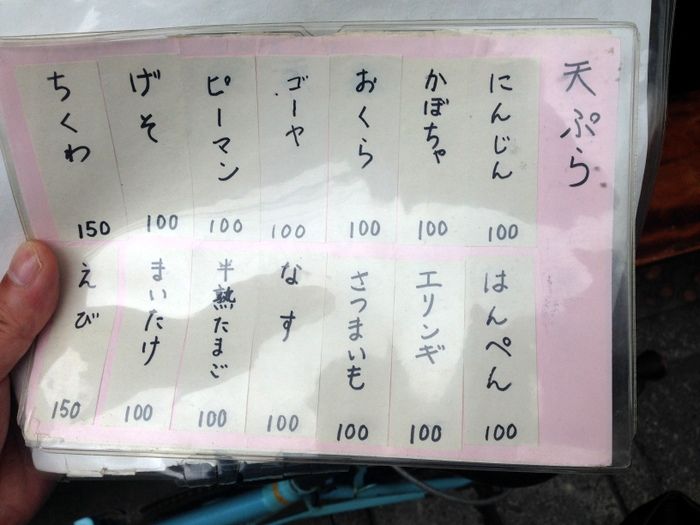 天ぷら
にんじん 100
かぼちゃ 100
おくら 100
ゴーヤ 100
ピーマン 100
げそ 100
ちくわ 150
はんぺん 100
エリンギ 100
さつまいも 100
なす 100
半熟たまご 100
まいたけ 100
えび 150